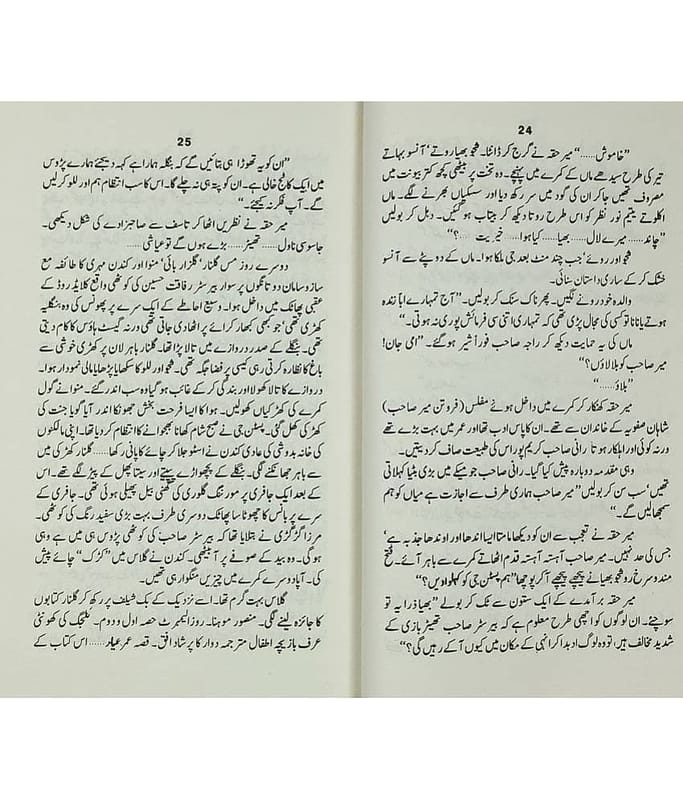 24
”خاموش......“ میر حقہ نے گرج کر ڈانٹا۔ فجو بھیا روتے‘ آنسو بہاتے
تیر کی طرح سیدھے ماں کے کمرے میں پہنچے۔ وہ تخت پر بیٹھی کچھ کتر بیونت میں
مصروف تھیں جا کر ان کی گود میں سر رکھ دیا اور سسکیاں بھرنے لگے۔ ماں
اکلوتے یتیم نور نظر کو اس طرح روتا دیکھ کر بیتاب ہو گئیں۔ دہل کر بولیں
”چاند...... میرے لال...... بھیا...... کیا ہوا...... خیریت ......؟“
فجو اور روئے‘ جب چند منٹ بعد جی ہلکا ہوا۔ ماں کے دوپٹے سے آنسو
خشک کر کے ساری داستان سنائی۔
والدہ خود رونے لگیں۔ پھر ناک سنک کر بولیں۔ ”آج تمہارے ابا زندہ
ہوتے یا نانا تو کسی کی مجال پڑی تھی کہ تمہاری اتنی سی فرمائش پوری نہ ہوتی۔“
ماں کی یہ حمایت دیکھ کر راجہ صاحب فوراً شیر ہو گئے۔ ”امی جان!
میر صاحب کو بلاؤں؟“
”بلاؤ......“
میر حقہ کھنکار کر کمرے میں داخل ہوئے مفلس (فروتن میر صاحب)
شاہان صفویہ کے خاندان سے تھے۔ ان کا پاس ادب تھا اور عمر میں بہت بڑے تھے
ورنہ کوئی اور اہلکار ہوتا تو رانی صاحب کریم پور اس کی طبیعت صاف کر دیتیں۔
وہی مقدمہ دوبارہ پیش کیا گیا۔ رانی صاحب جو میکے میں بڑی بٹیا کہلاتی
تھیں‘ سب سن کر بولیں ”میر صاحب ہماری طرف سے اجازت ہے میاں کو ہم
سمجھا لیں گے۔“
میر حقہ نے تعجب سے ان کو دیکھا مامتا ایسا اندھا اور اوندھا جذبہ ہے‘
جس کی حد نہیں۔ میر صاحب آہستہ آہستہ قدم اٹھاتے کمرے سے باہر آئے۔ فتح
مند و سرخ رو فجو بھیا نے پیچھے پیچھے آ کر پوچھا ”ہم پسٹن جی کو کہلوا دیں؟“
میر حقہ برآمدے کے ایک ستون سے ٹک کر بولے ”بھیا ذرا یہ تو
سوچئے۔ ان لوگوں کو اچھی طرح معلوم ہے کہ بیرسٹر صاحب تھیٹر بازی کے
شدید مخالف ہیں‘ تو وہ لوگ ادبدا کر انہی کے مکان میں کیوں آ کے رہیں گی؟“
25
”ان کو یہ تھوڑا ہی بتائیں گے کہ بنگلہ ہمارا ہے کہہ دیجئے ہمارے پڑوس
میں ایک کاٹیج خالی ہے۔ ان کو پتہ ہی نہ چلے گا۔ اس کا سب انتظام ہم اور للو کر لیں
گے۔ آپ فکر نہ کیجئے۔“
میر حقہ نے نظریں اٹھا کر تاسف سے صاحبزادے کی شکل دیکھی۔
جاسوسی ناول...... تھیٹر...... بڑے ہوں گے تو عیاشی......
دوسرے روز مس گلنار‘ گلزار بائی‘ منوا اور کندن مہری کا طائفہ مع
ساز و سامان دو تانگوں پر سوار بیرسٹر رفاقت حسین کی کوٹھی واقع کلائیڈ روڈ کے
عقبی پھاٹک میں داخل ہوا۔ وسیع احاطے کے ایک سرے پر پھونس کی وہ بنگلیہ
کھڑی تھی‘ جو کبھی کبھار کرائے پر اٹھا دی جاتی تھی ورنہ گیسٹ ہاؤس کا کام دیتی
تھی۔ بنگلے کے صدر دروازے میں تالا پڑا تھا۔ گلنار باہر لان پر کھڑی خوشی سے
باغ کا نظارہ کرتی رہی کیسی پر فضا جگہ تھی۔ فجو اور للو کا سکھایا پڑھایا مالی نمودار ہوا۔
دروازے کا تالا کھولا اور بندگی کر کے غائب ہو گیا وہ سب اندر گئے۔ منوا نے گول
کمرے کی کھڑکیاں کھولیں۔ ہوا کا ایسا فرحت بخش جھونکا اندر آیا گویا جنت کی
کھڑکی کھل گئی۔ پسٹن جی نے صبح شام کھانا بھجوانے کا انتظام کر دیا تھا۔ اپنی مالکنوں
کی خانہ بدوشی کی عادی کندن نے اسٹو جلا کر چائے کا پانی رکھا...... گلنار کھڑکی میں
سے باہر جھانکنے لگی۔ بنگلے کے پچھواڑے پپیتے اور سیتا پھل کے پیڑ لگے تھے۔ اس
کے بعد ایک جافری پر مورننگ گلوری کی گھنی بیل پھیلی ہوئی تھی۔ جافری کے
سرے پر بانس کا چھوٹا سا پھاٹک دوسری طرف بہت بڑی سفید رنگ کی کوٹھی۔
مرزا گڑگڑی نے بتلایا تھا کہ بیرسٹر صاحب کی کوٹھی پڑوس ہی میں ہے وہی
ہو گی۔ وہ بید کے صوفے پر آ بیٹھی۔ کندن نے گلاس میں ”کڑک“ چائے پیش
کی۔ آپا دوسرے کمرے میں چیزیں سنگوا رہی تھیں۔
گلاس بہت گرم تھا۔ اسے نزدیک کے بک شیلف پر رکھ کر گلنار کتابوں
کا جائزہ لینے لگی۔ منصور موہنا۔ روزا لیمبرٹ حصہ اول و دوم۔ کھونٹی
عرف بازیچہ اطفال مترجمہ دوارکا پرشاد افق۔ قصہ عمر عیار...... اس کتاب کے